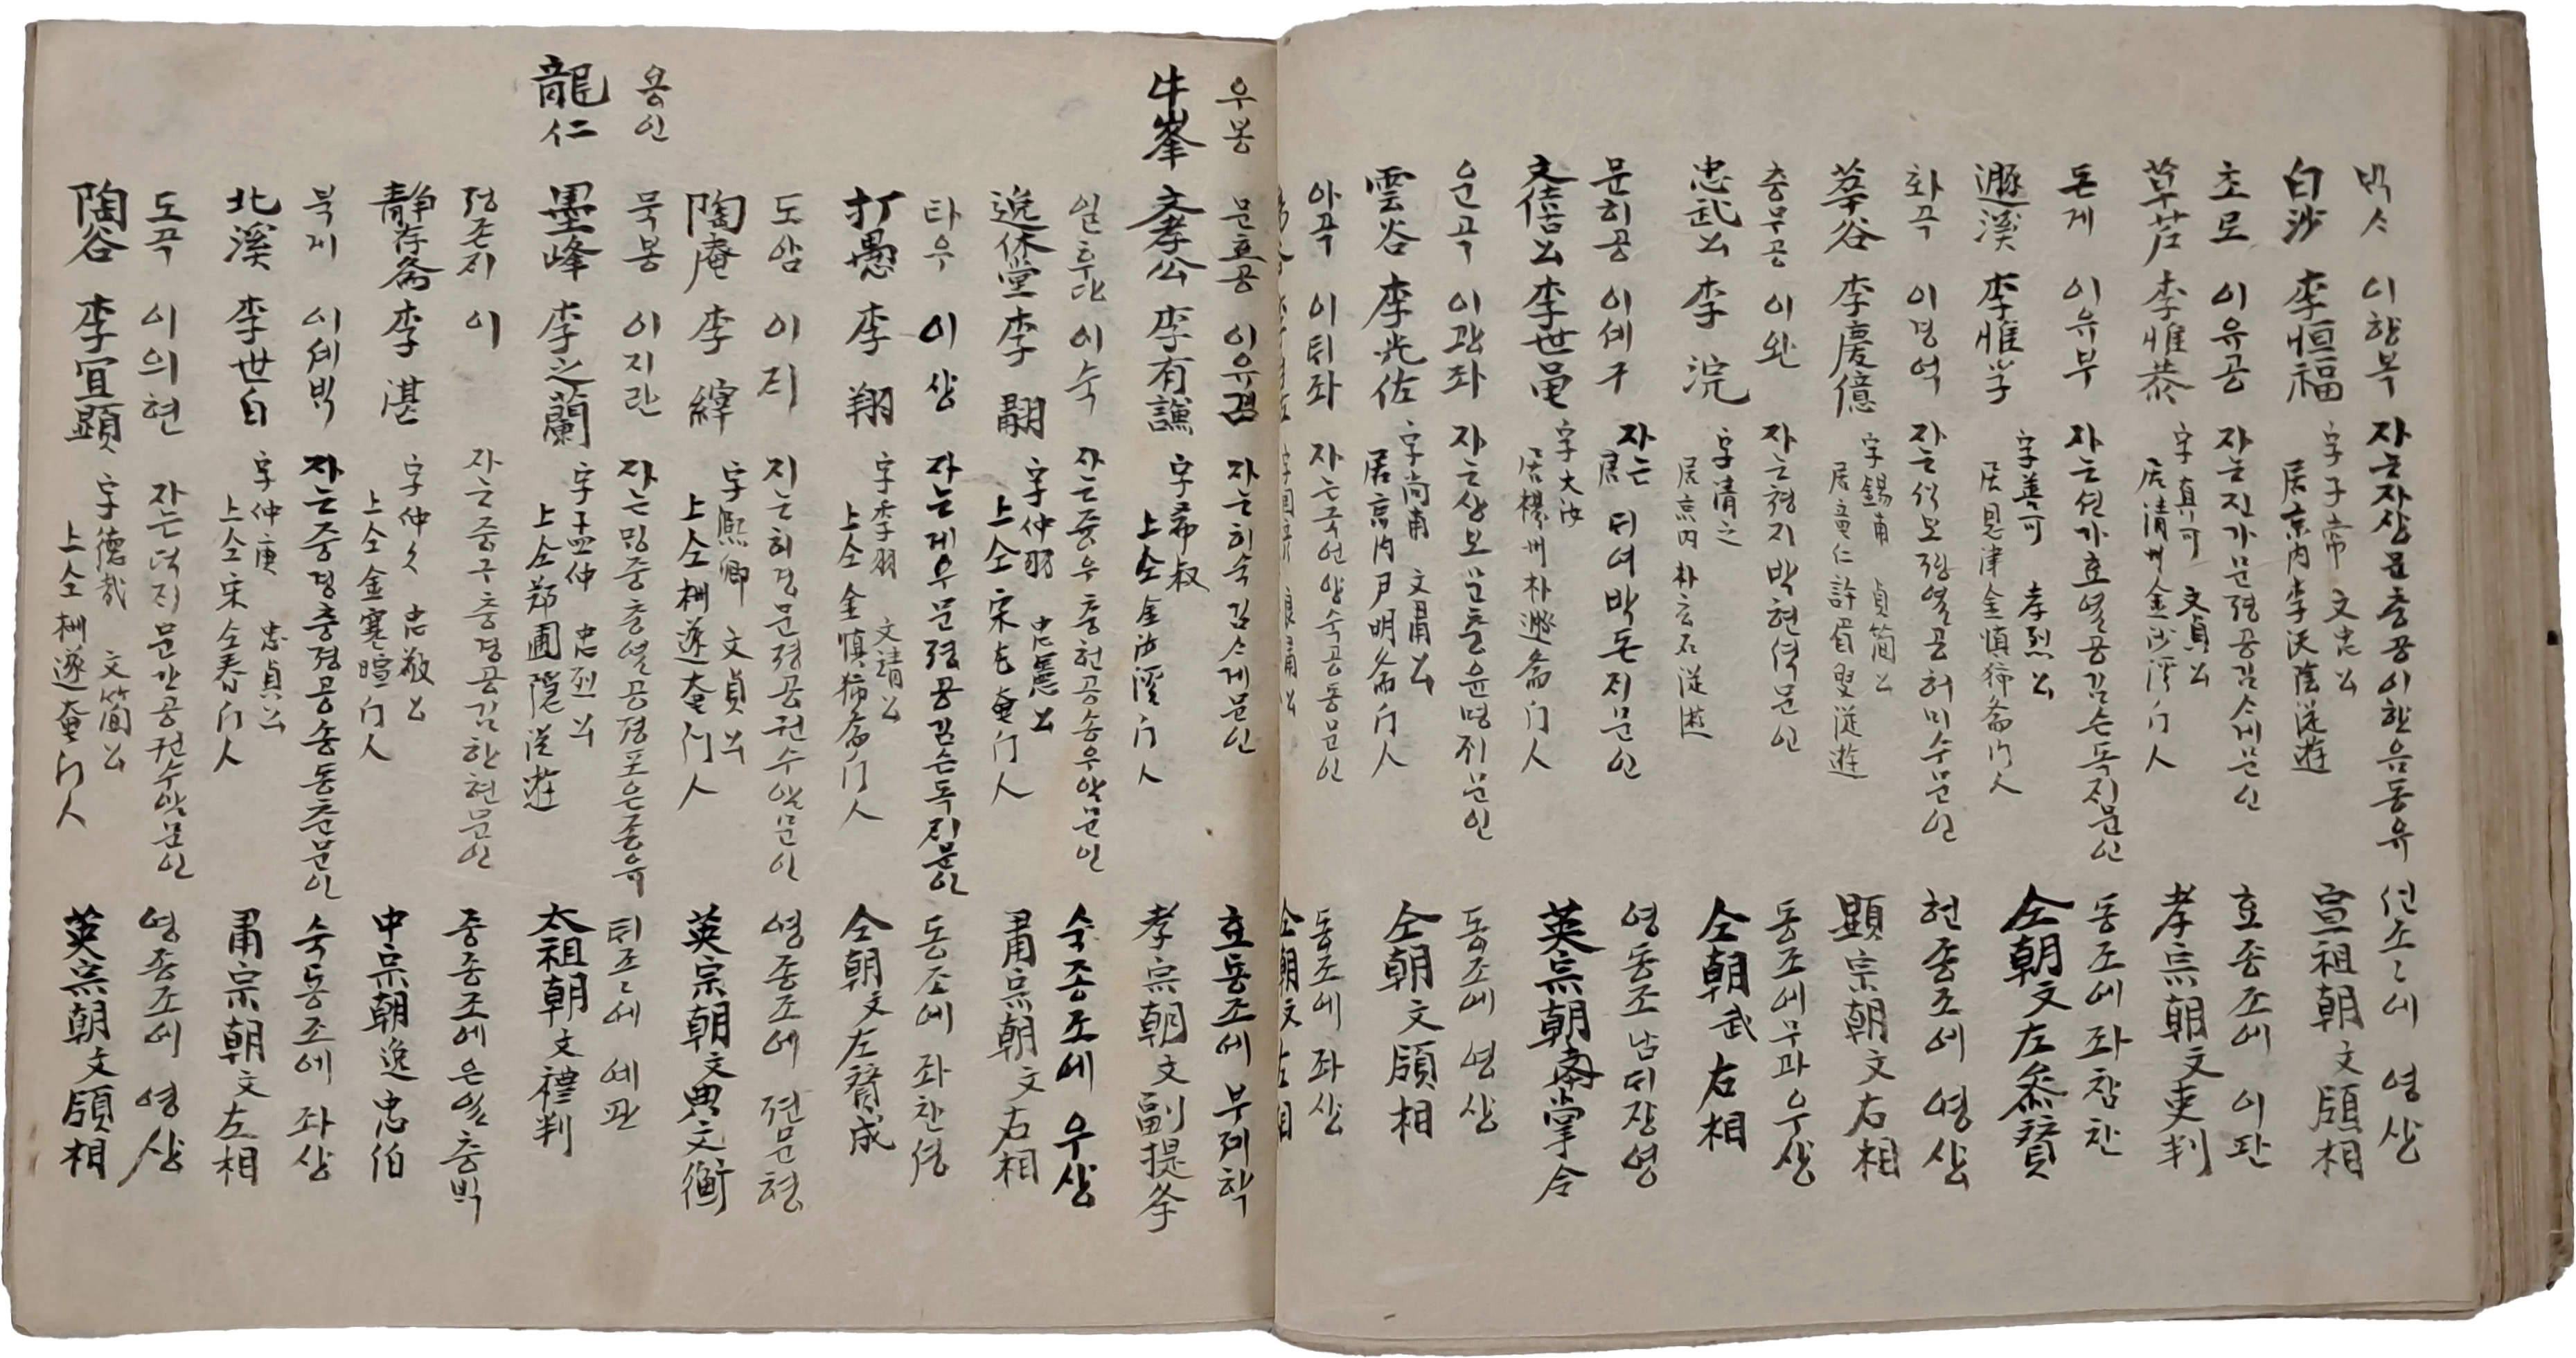 빅ᄉ 이항복 자는자상문충공이한음동유 선조ᄭ에 영상
白沙 李恒福 字子常 文忠公 居京內李漢陰從遊 宣祖朝文領相
초로 이유공 자는진가문졍공김ᄉ계문인 효종조에 이판
草芦 李惟恭 字眞可 文貞公 居淸州金沙溪门人 孝宗朝文吏判
돈계 이유부 자는션가효열공김슨독직문인 동조에 좌참찬
遯溪 李惟孚 字善可 孝烈公 居恩津金愼獨斋门人 仝朝文左叅贊
화곡 이경억 자는셕보졍열공허미수문인 현종조에 영상
華谷 李慶億 字錫甫 貞簡公 許眉叟從遊 顯宗朝文右相
충무공 이완 자는현지박현셕문인 동조에무과우상
忠武公 李浣 字清之 居京内朴玄石從遊 仝朝武右相
문히공 이셰구 자는 듸여박돈지문인 영동조남듸장영
李世龜 字大汝 居楊州朴遯斋门人 英宗朝南掌令
운곡 이광좌 자는상보문충윤명지문인 동조에 영상
雲谷 李光佐 字尚甫 居京内尹明斋门人 仝朝文領相
아곡 이틔좌 자는국언양숙공동문인 동조에 좌상
우봉 문효공 이유겸 자는히숙김ᄉ계문인 효동조에 부졔학
牛峯 文孝公 李有謙 字希叔 上仝金沙溪门人 孝宗朝文副提学
일휴당 이숙 자는즁우충헌공송우암문인 숙종조에 우상
逸休堂 李䎘 字仲羽 忠憲公 上仝宋尤菴门人 肅宗朝文右相
타우 이상 자는계우문졍공김슨독직문인 동조에 좌찬셩
打愚 李翔 字季羽 文靖公 上仝金愼獨斋门人 仝朝文左贊成
도암 이직 지는히경문졍공권수암문인 영종조에 젼문형
陶庵 李縡 字熙卿 文貞公 上仝權遂菴门人 英宗朝文典文衡
용인 묵봉 이지란 자는밍중충열공졍포은종유 틔조ᄭ에 예판
龍仁 墨峰 李之蘭 字孟仲 忠烈公 上仝鄭圃隱從遊 太祖朝文禮判
졍존지 이 자는중구충경공김한현문인 중종조에은일충빅
靜存斋 李湛 字仲久 忠敬公 上仝金寒暄门人 中宗朝逸忠伯
북계 이셰빅 자는중경충졍공송동춘문인 숙동조에 좌상
北溪 李世白 字仲庚 忠貞公 上仝宋仝春门人 肅宗朝文左相
도곡 이의현 자는덕지문간공권수암문인 영종조에 영상
陶谷 李宜顯 字德哉 文簡公 上仝權遂菴门人 英宗朝文領相